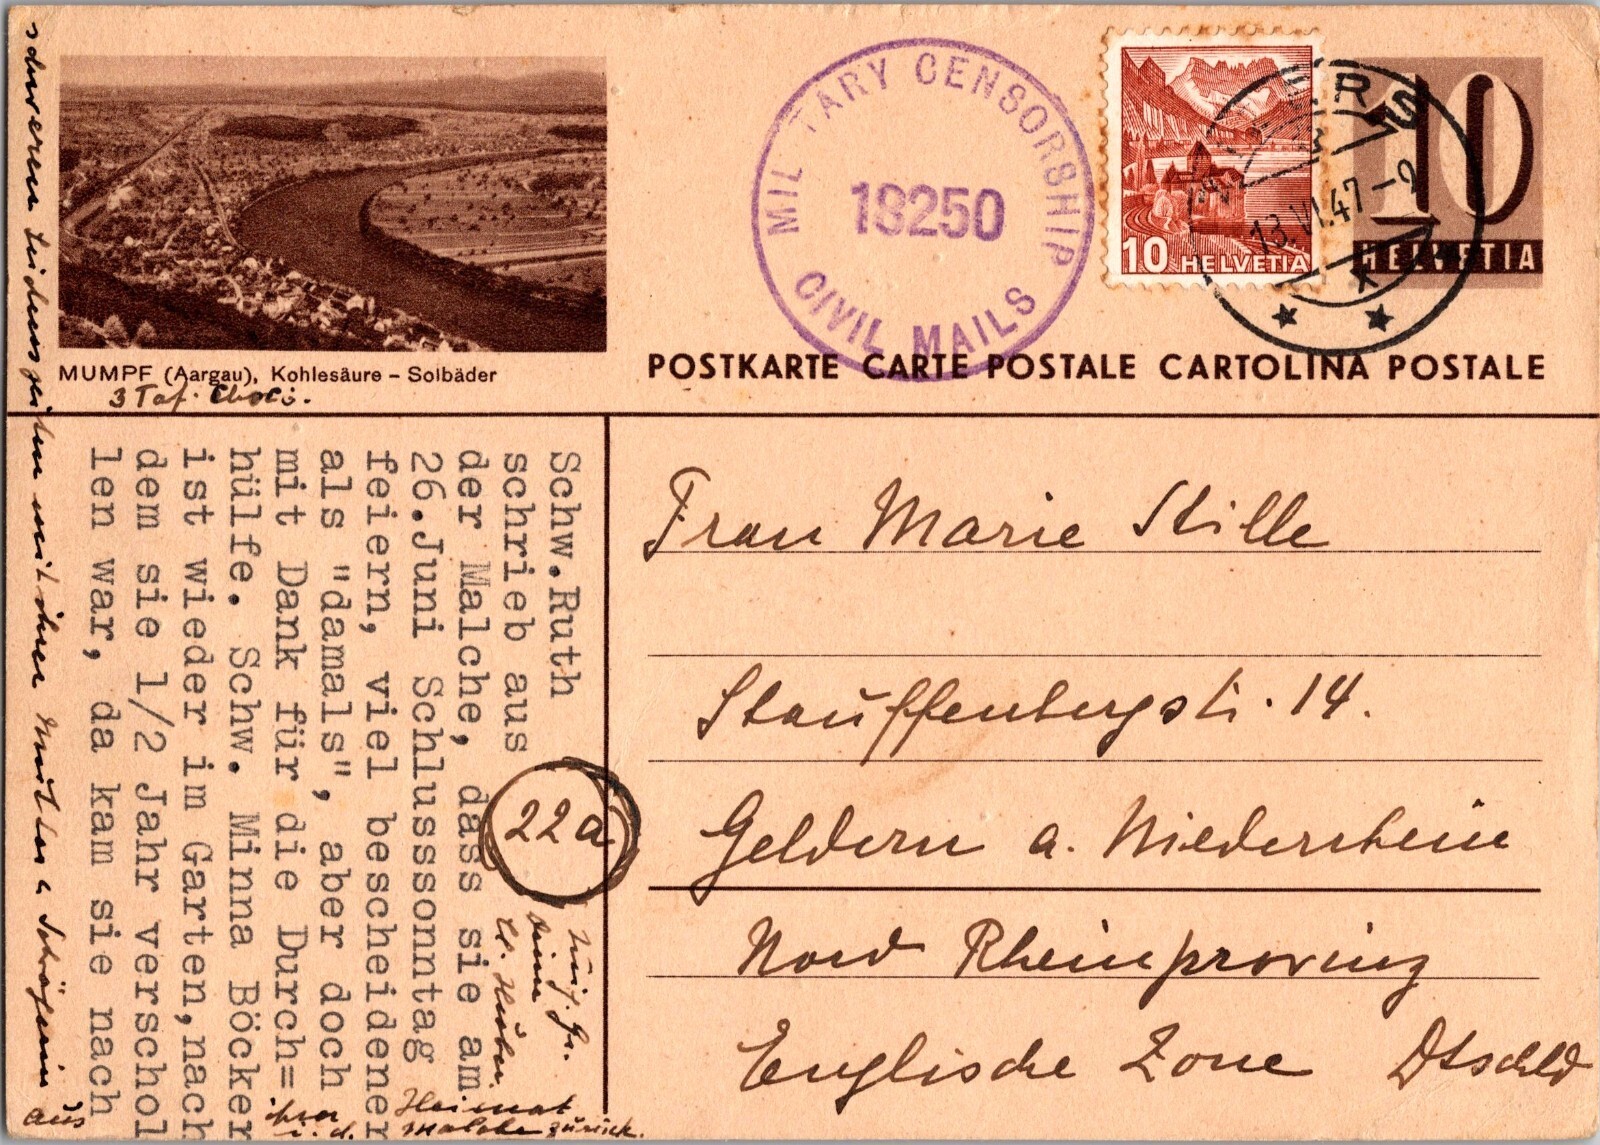 MUMPF (Aargau), Kohlesäure – Solbäder
3 Taf. Choc.
MILITARY CENSORSHIP
18250
CIVIL MAILS
10
HELVETIA
13.VI.47-9
10
HELVETIA
POSTKARTE CARTE POSTALE CARTOLINA POSTALE
Frau Marie Stille
Stauffenbergstr. 14.
Geldern a. Niederrhein
Nord Rheinprovinz
Englische Zone Dtschld
22a
Schw.Ruth
schrieb aus
der Malche, dass sie am
26.Juni Schlusssonntag
feiern, viel bescheidener
als "damals", aber doch
mit Dank für die Durch=
hülfe. Schw. Minna Böcker
ist wieder im Garten,nach
dem sie 1/2 Jahr verschol
len war, da kam sie nach
schweren Leidenszeiten mit ihrer Mutter u. Schwägerin aus
ihrer Heimat
i. d. Malche zurück.
Deine
E. Huber